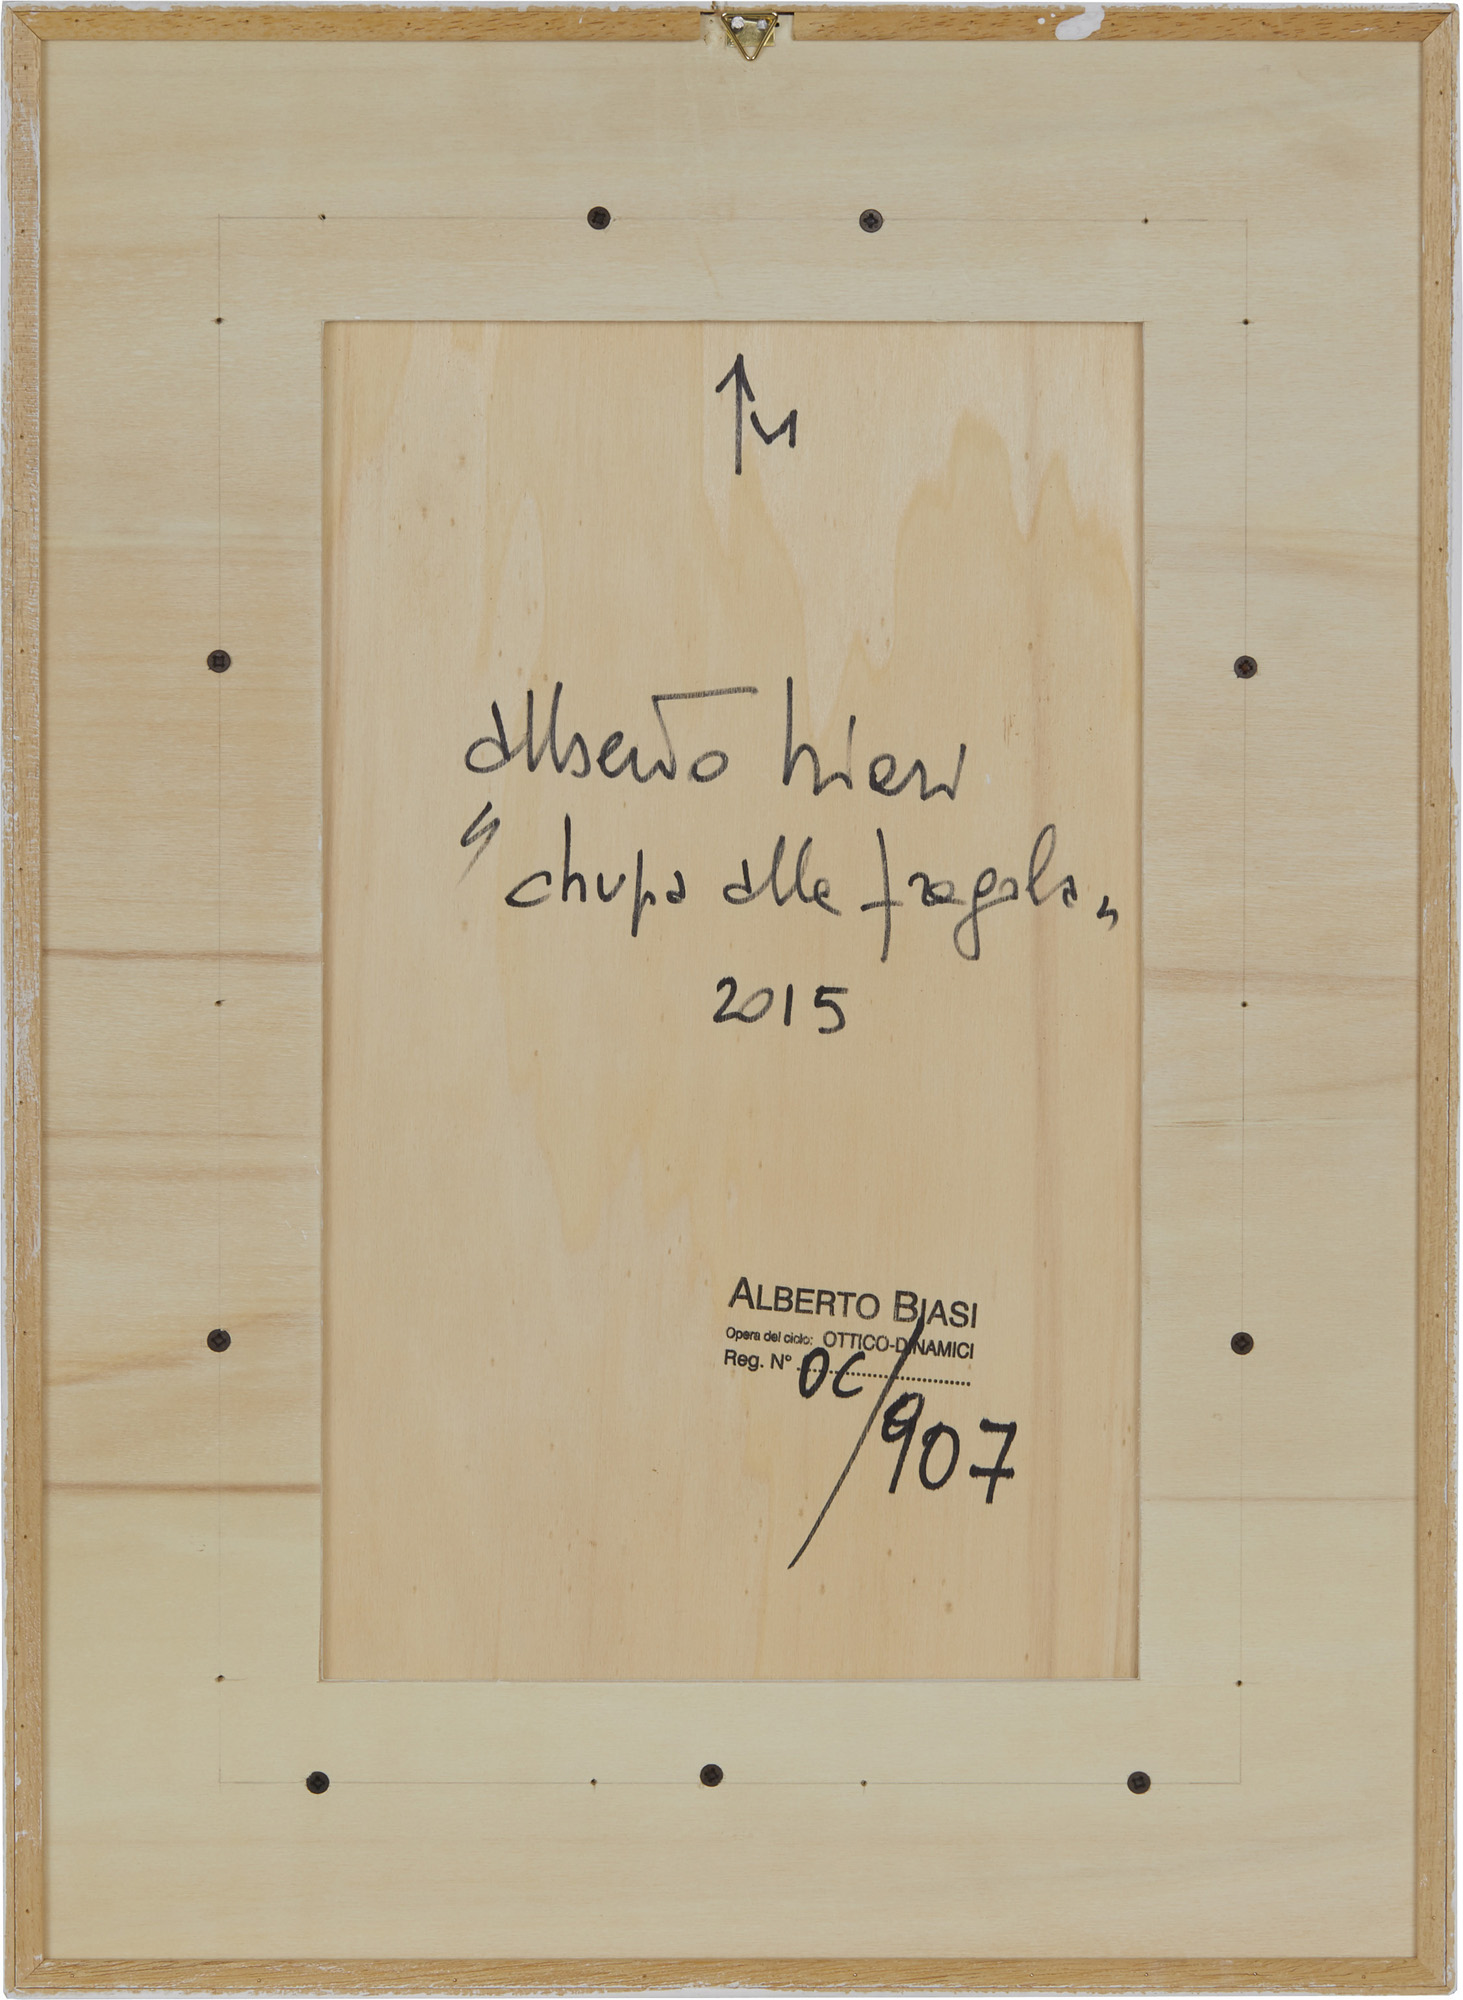 alberto biasi
"chupa alla fragola"
2015
ALBERTO BIASI
Opera del ciclo: OTTICO-DINAMICI
Reg. N° OC/907